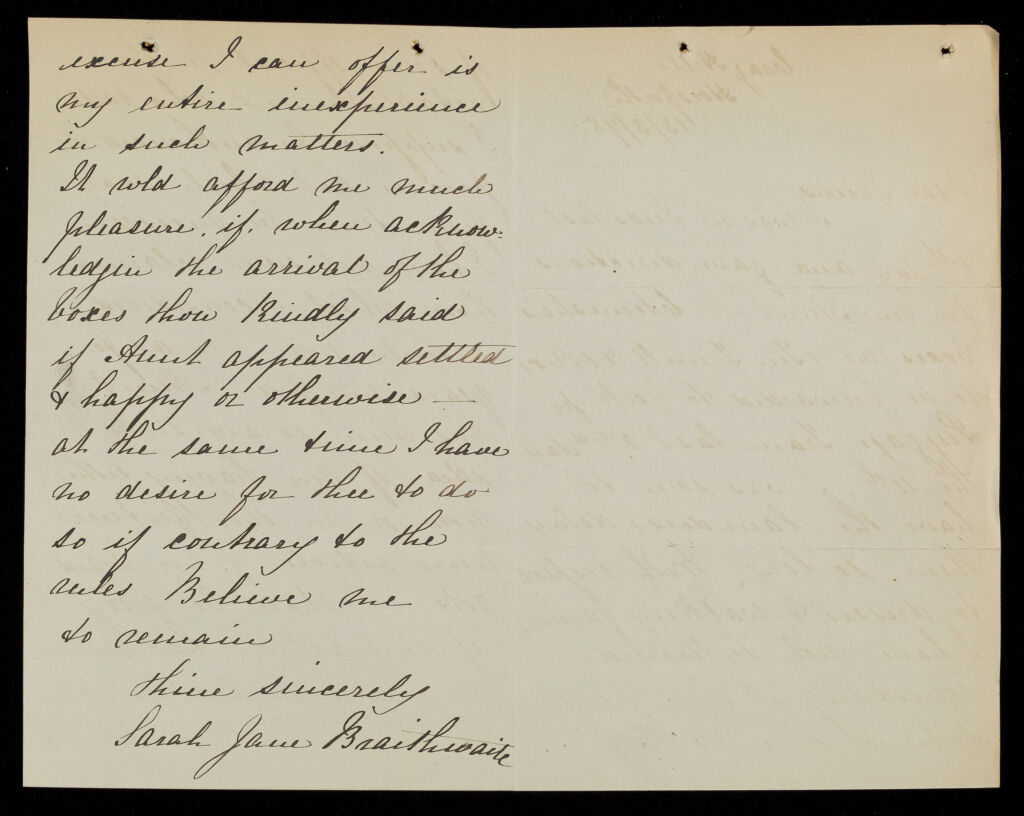 excuse I can offer is
my entire inexperience
in such matters.
It wld afford me much
pleasure, if, when acknow-
ledgin the arrival of the
boxes thou kindly said
if Aunt appeared settled
& happy or otherwise —
at the same time I have
no desire for thee to do
so if contrary to the
rules Believe me
to remain
thine sincerely
Sarah Jane Braithwaite